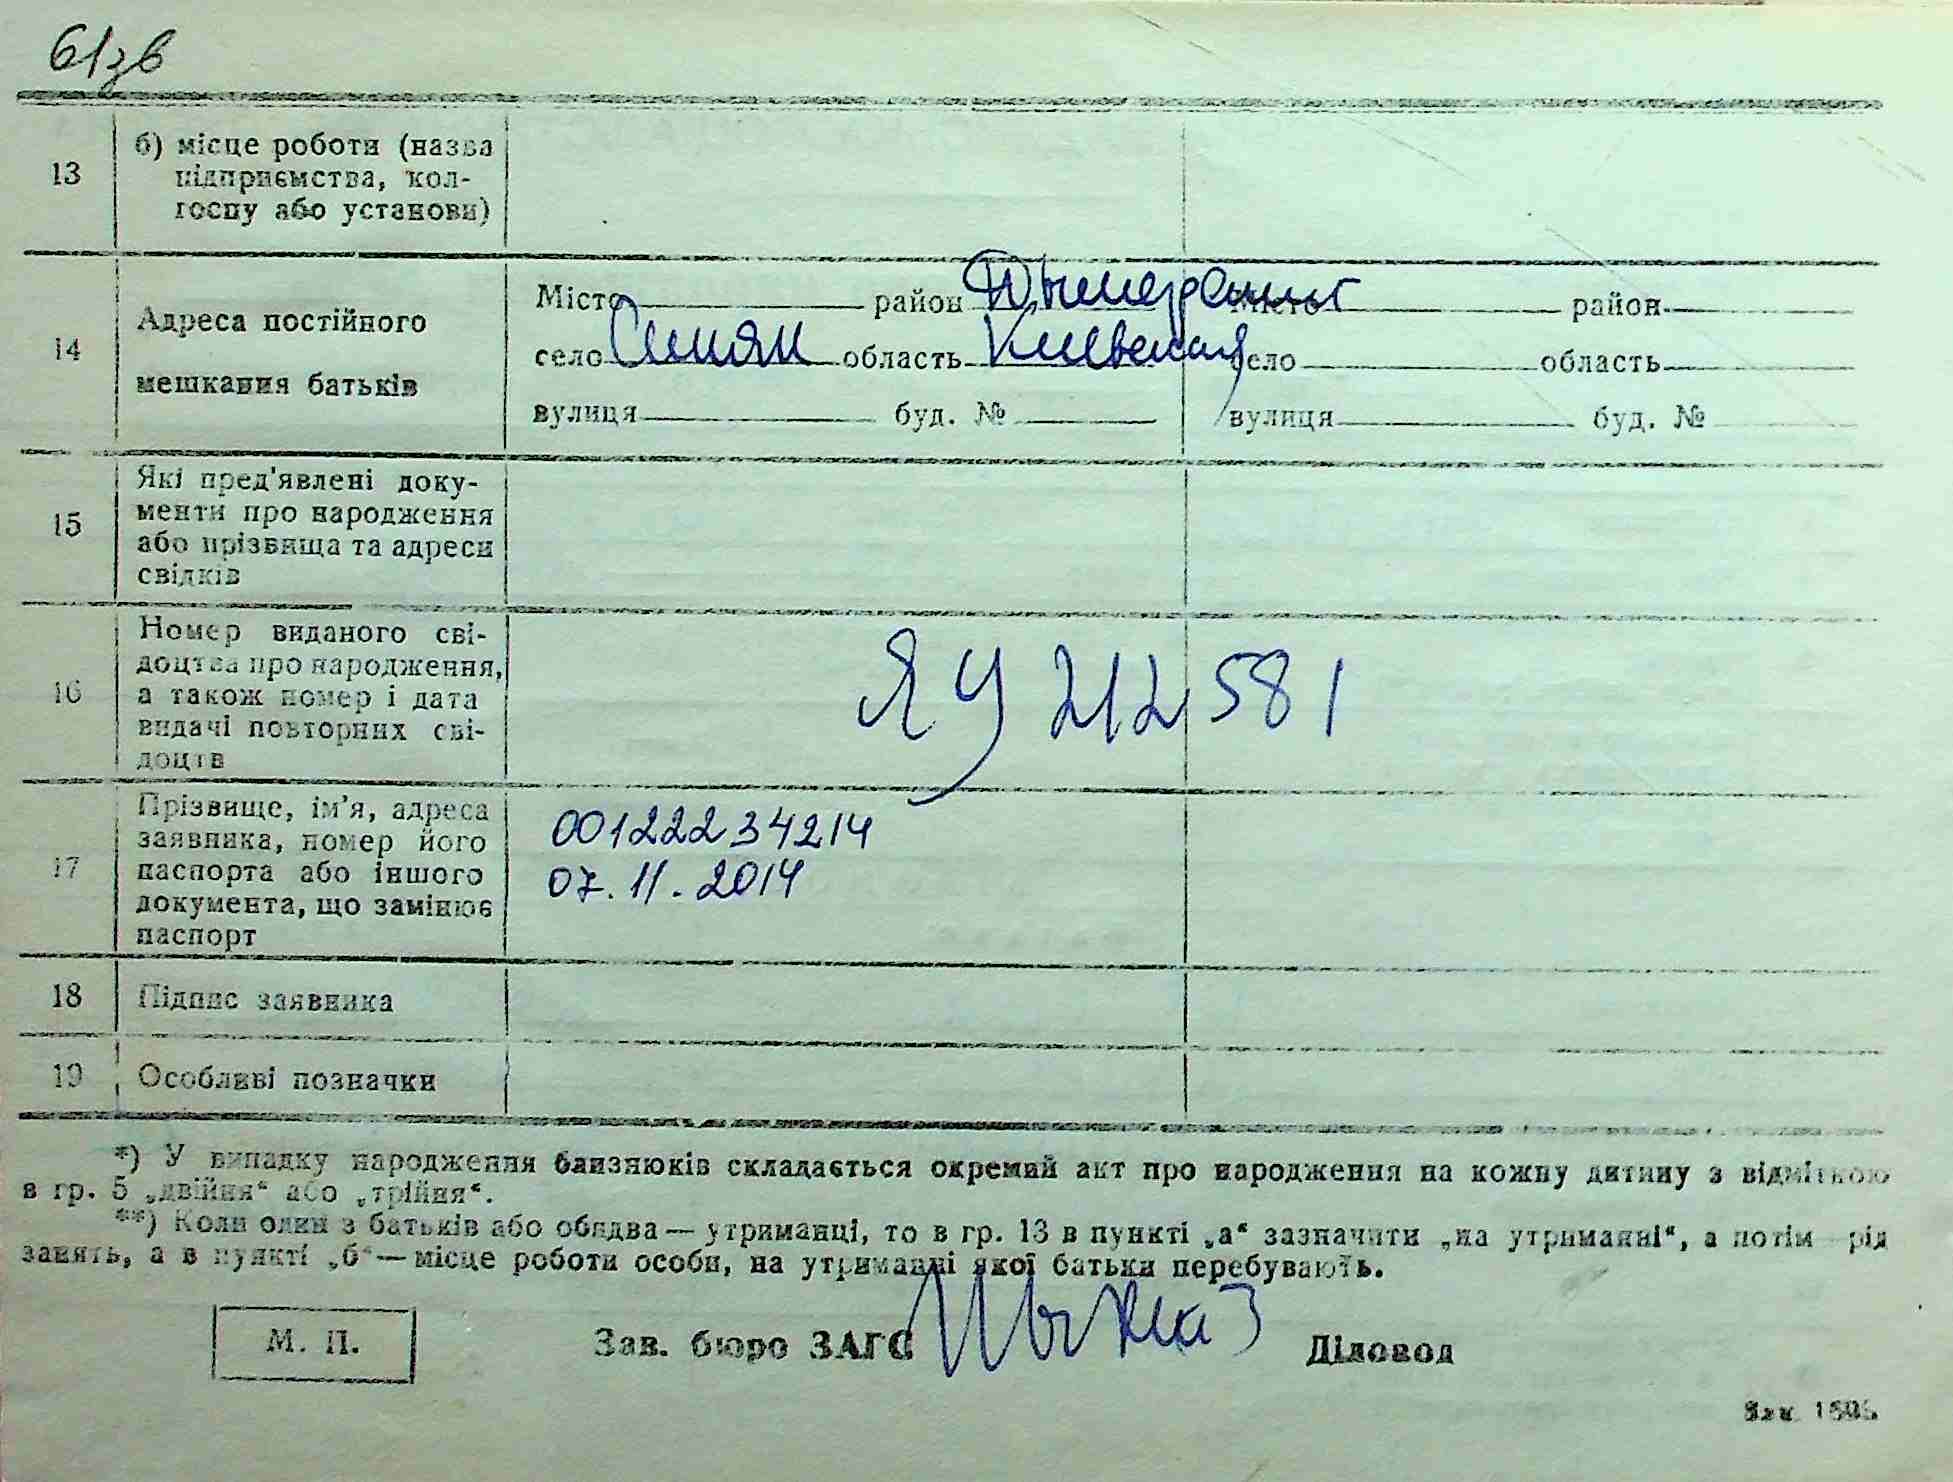 61зв
13
б) місце роботи (назва
підприємства, кол-
госпу або установи)
14
Адреса постійного
мешкання батьків
Місто район Дымерський Місто район
село Синяк область Киевская село область
вулиця буд. № вулиця буд. №
15
Які пред'явлені доку-
менти про народження
або прізвища та адреси
свідків
16
Номер виданого сві-
доцтва про народження,
а також номер і дата
видачі повторних сві-
доцтв
ЯУ 212581
17
Прізвище, ім'я, адреса
заявника, номер його
паспорта або іншого
документа, що замінює
паспорт
00122234214
07.11.2014
18
Підпис заявника
19
Особливі позначки
*) У випадку народження близнюків складається окремий акт про народження на кожну дитину з відміткою
в гр. 5 „двійня“ або „трійня“.
**) Коли один з батьків або обидва — утриманці, то в гр. 13 в пункті „а“ зазначити „на утриманні“, а потім рід
занять, а в пункті „б“ — місце роботи особи, на утриманні якої батьки перебувають.
М. П.
Зав. бюро ЗАГС
Діловод
Зак.